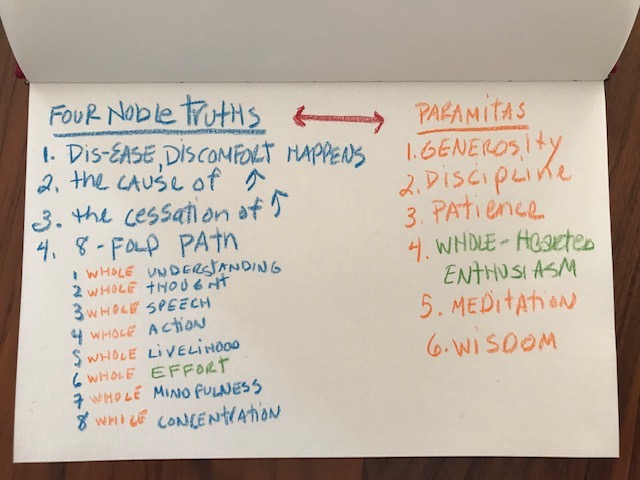 FOUR NOBLE TRUTHS
1. DIS-EASE, DISCOMFORT HAPPENS
2. the CAUSE OF ↑
3. the cessation of ↑
4. 8-FOLD PATH
1 WHOLE UNDERSTANDING
2 WHOLE THOUGHT
3 WHOLE SPEECH
4 WHOLE ACTION
5 WHOLE LIVELIHOOD
6 WHOLE EFFORT
7 WHOLE MINDFULNESS
8 WHOLE CONCENTRATION
PARAMITAS
1. GENEROSITY
2. DISCIPLINE
3. PATIENCE
4. WHOLE-HEARTED
ENTHUSIASM
5. MEDITATION
6. WISDOM